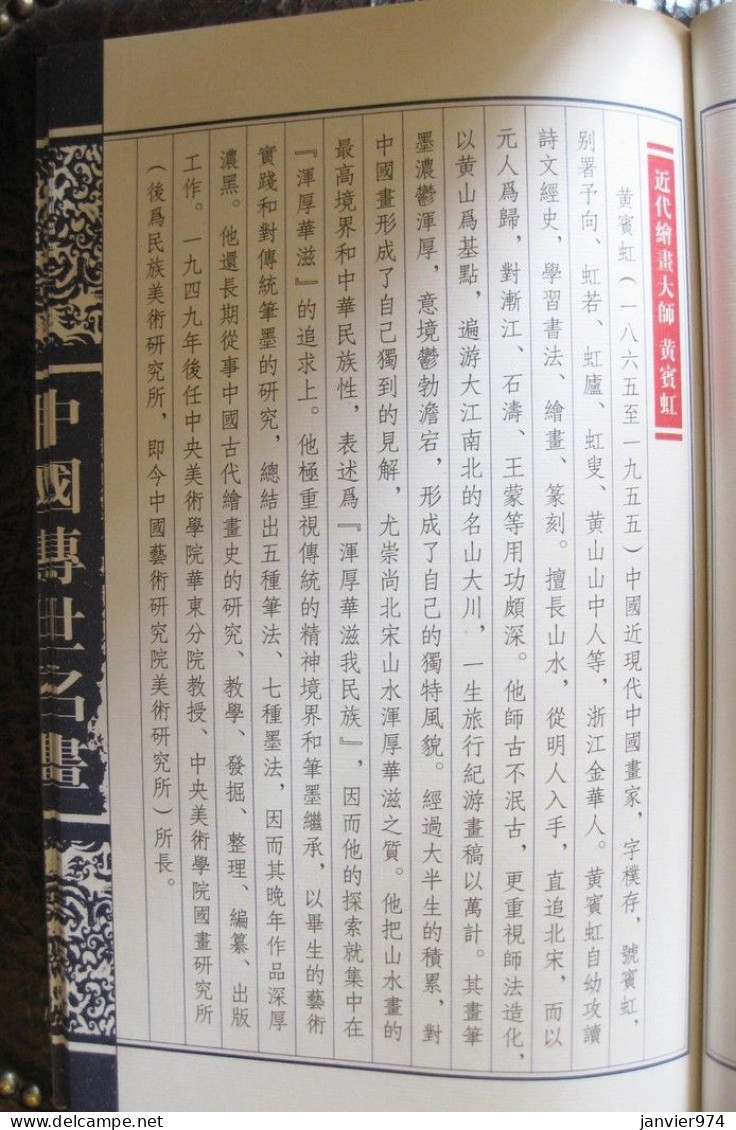 近代繪畫大師 黃賓虹
黃賓虹（一八六五至一九五五）中國近現代中國畫家，字樸存，號賓虹，
別署予向、虹若、虹廬、虹叟、黃山山中人等，浙江金華人。黃賓虹自幼攻讀
詩文經史，學習書法、繪畫、篆刻。擅長山水，從明人入手，直追北宋，而以
元人爲歸，對漸江、石濤、王蒙等用功頗深。他師古不泯古，更重視師法造化，
以黃山爲基點，遍游大江南北的名山大川，一生旅行紀游畫稿以萬計。其畫筆
墨濃鬱渾厚，意境鬱勃澹宕，形成了自己的獨特風貌。經過大半生的積累，對
中國畫形成了自己獨到的見解，尤崇尚北宋山水渾厚華滋之質。他把山水畫的
最高境界和中華民族性，表述爲『渾厚華滋我民族』，因而他的探索就集中在
『渾厚華滋』的追求上。他極重視傳統的精神境界和筆墨繼承，以畢生的藝術
實踐和對傳統筆墨的研究，總結出五種筆法、七種墨法，因而其晚年作品深厚
濃黑。他還長期從事中國古代繪畫史的研究、教學、發掘、整理、編纂、出版
工作。一九四九年後任中央美術學院華東分院教授、中央美術學院國畫研究所
（後爲民族美術研究所，即今中國藝術研究院美術研究所）所長。
中國傳世名畫
janvier974